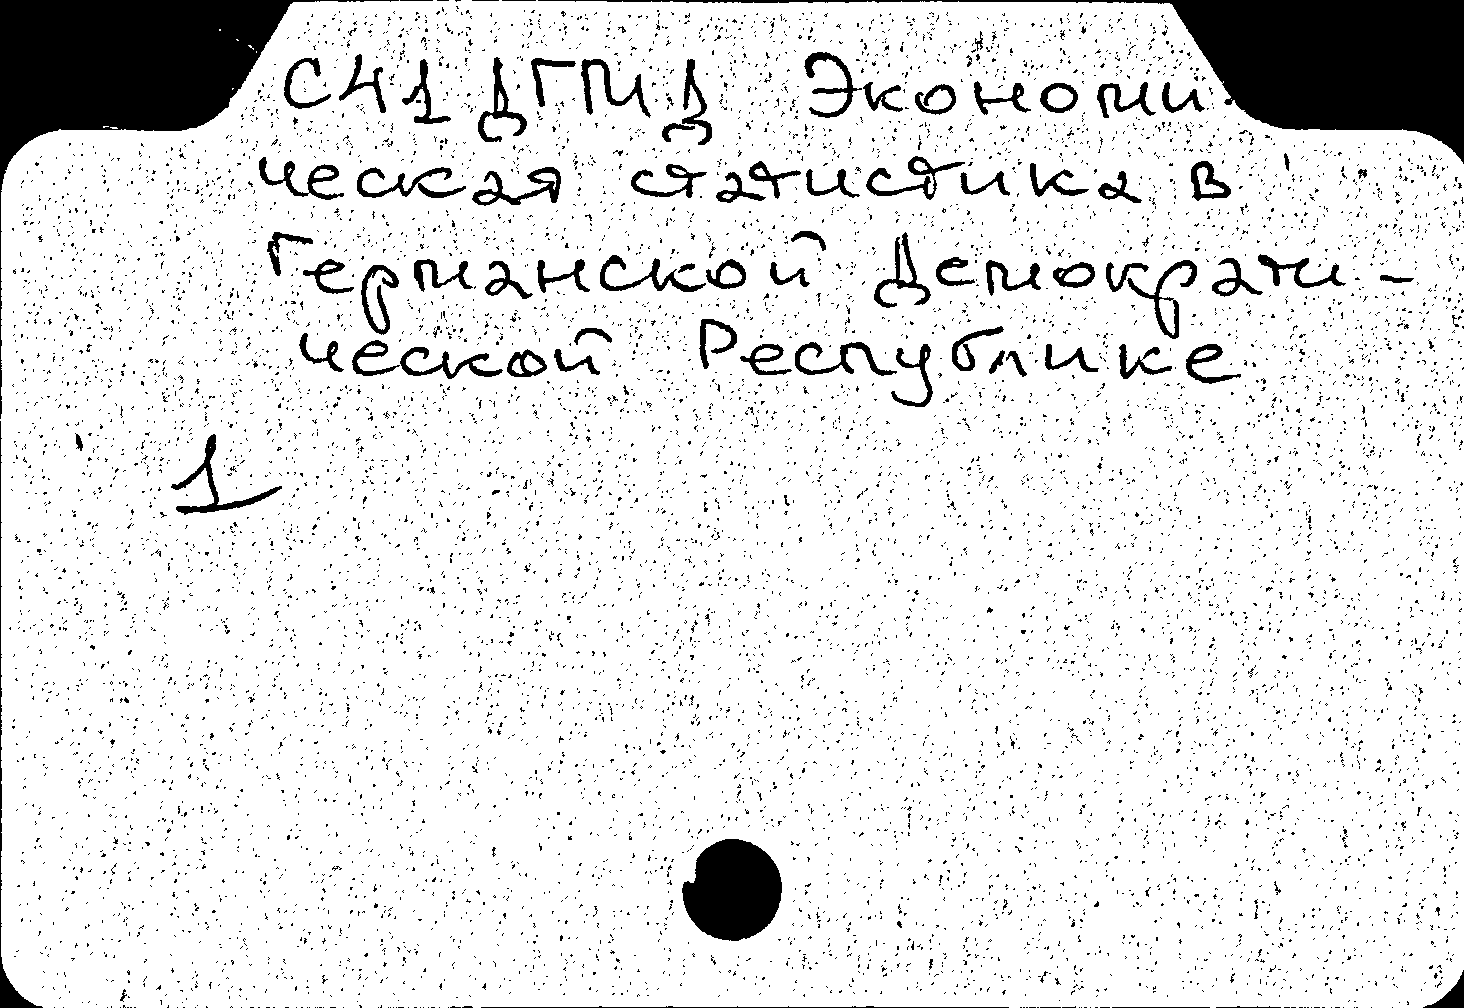 С41 ДГМД Экономи-
ческая статистика в
Германской Демократи-
ческой Республике
1